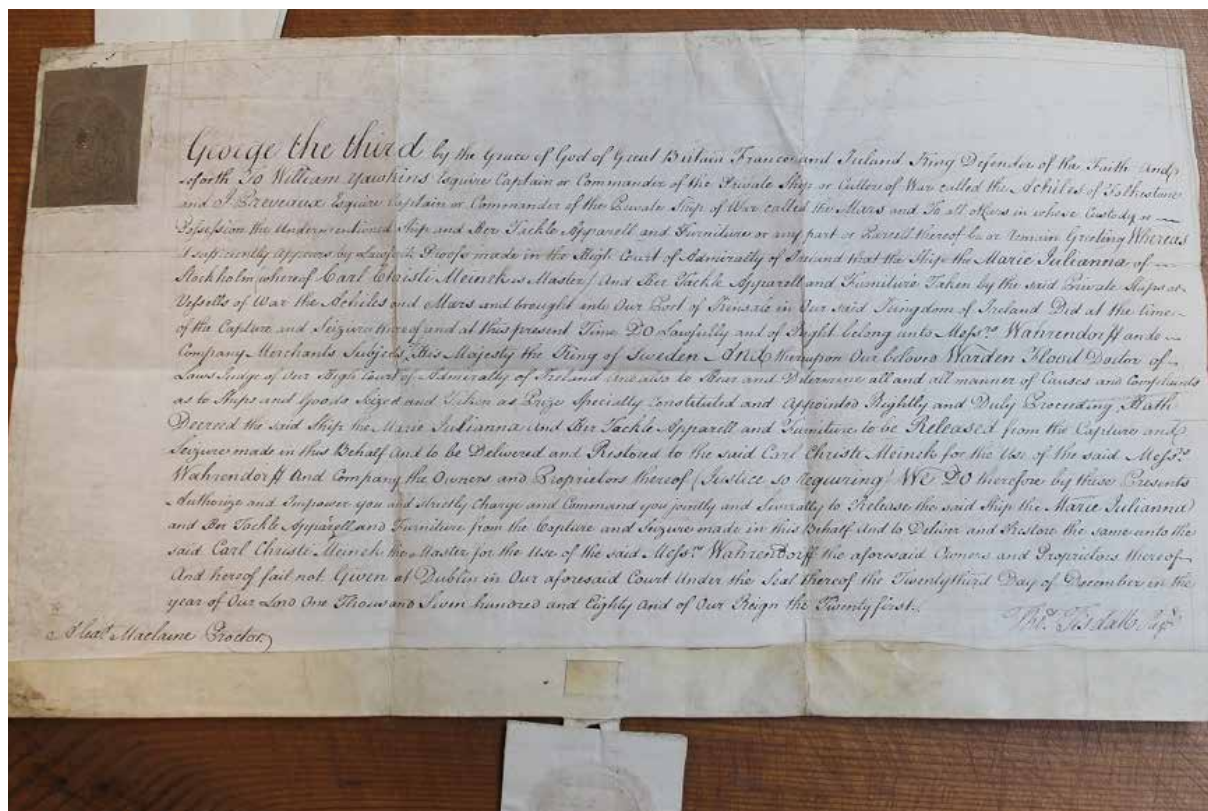 George the third by the Grace of God of Great Britain France and Ireland King Defender of the Faith And
soforth To William Yawkins Esquire Captain or Commander of the Private Ship or Cutter of War called the Achiles of Folkestone
and J. Preveaux Esquire Captain or Commander of the Private Ship of War called the Mars and To all others in whose Custody or
Possession the Undermentioned Ship and Her Tackle Apparell and Furniture or any part or Parcell thereof be or remain Greeting Whereas
it sufficiently appears by Lawfull Proofs made in the High Court of Admiralty of Ireland that the Ship the Marie Julianna of
Stockholm (whereof Carl Christi Meinck is Master) And Her Tackle Apparell and Furniture Taken by the said Private Ships or
Vessells of War the Achiles and Mars and brought into Our Port of Kinsale in Our said Kingdom of Ireland Did at the time
of the Capture and Seizure thereof and at this present Time DO Lawfully and of Right belong unto Messrs. Wahrendorff and
Company Merchants Subjects His Majesty the King of Sweden And thereupon Our beloved Warden Flood Doctor of
Laws Judge of Our High Court of Admiralty of Ireland and also to Hear and Determine all and all manner of Causes and Complaints
as to Ships and Goods Seized and Taken as Prize Specially Constituted and Appointed Rightly and Duly Proceeding Hath
Decreed the said Ship the Marie Julianna And Her Tackle Apparell and Furniture to be Released from the Capture and
Seizure made in this Behalf And to be Delivered and Restored to the said Carl Christi Meinck for the Use of the said Messrs.
Wahrendorff And Company the Owners and Proprietors thereof (Justice so Requiring) WE DO therefore by these Presents
Authorize and Impower you and strictly Charge and Command you jointly and Severally to Release the said Ship the Marie Julianna
and Her Tackle Apparell and Furniture from the Capture and Seizure made in this Behalf And to Deliver and Restore the same unto the
said Carl Christi Meinck the Master for the Use of the said Messrs. Wahrendorff the aforesaid Owners and Proprietors thereof
And hereof fail not. Given at Dublin in Our aforesaid Court Under the Seal thereof the Twentythird Day of December in the
year of Our Lord One Thousand Seven hundred and Eighty And of Our Reign the Twenty first.
Thos. Tisdall Regr.
Alexr. Maclaine Proctor